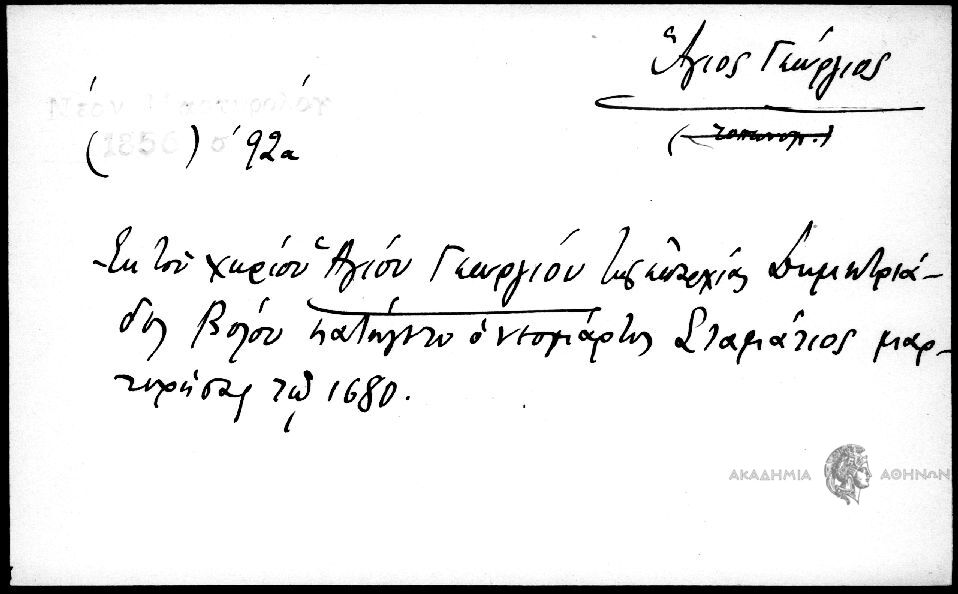 Ἅγιος Γεώργιος
(τοπωνυμ.)
Νέον Μαρτυρολόγιον
(1856) σ. 92α
Ἐκ τοῦ χωρίου Ἁγίου Γεωργίου τῆς ἐπαρχίας Δημητριά-
δος Βόλου κατήγετο ὁ νεομάρτυς Σταμάτιος μαρ-
τυρήσας τῷ 1680.
ΑΚΑΔΗΜΙΑ ΑΘΗΝΩΝ